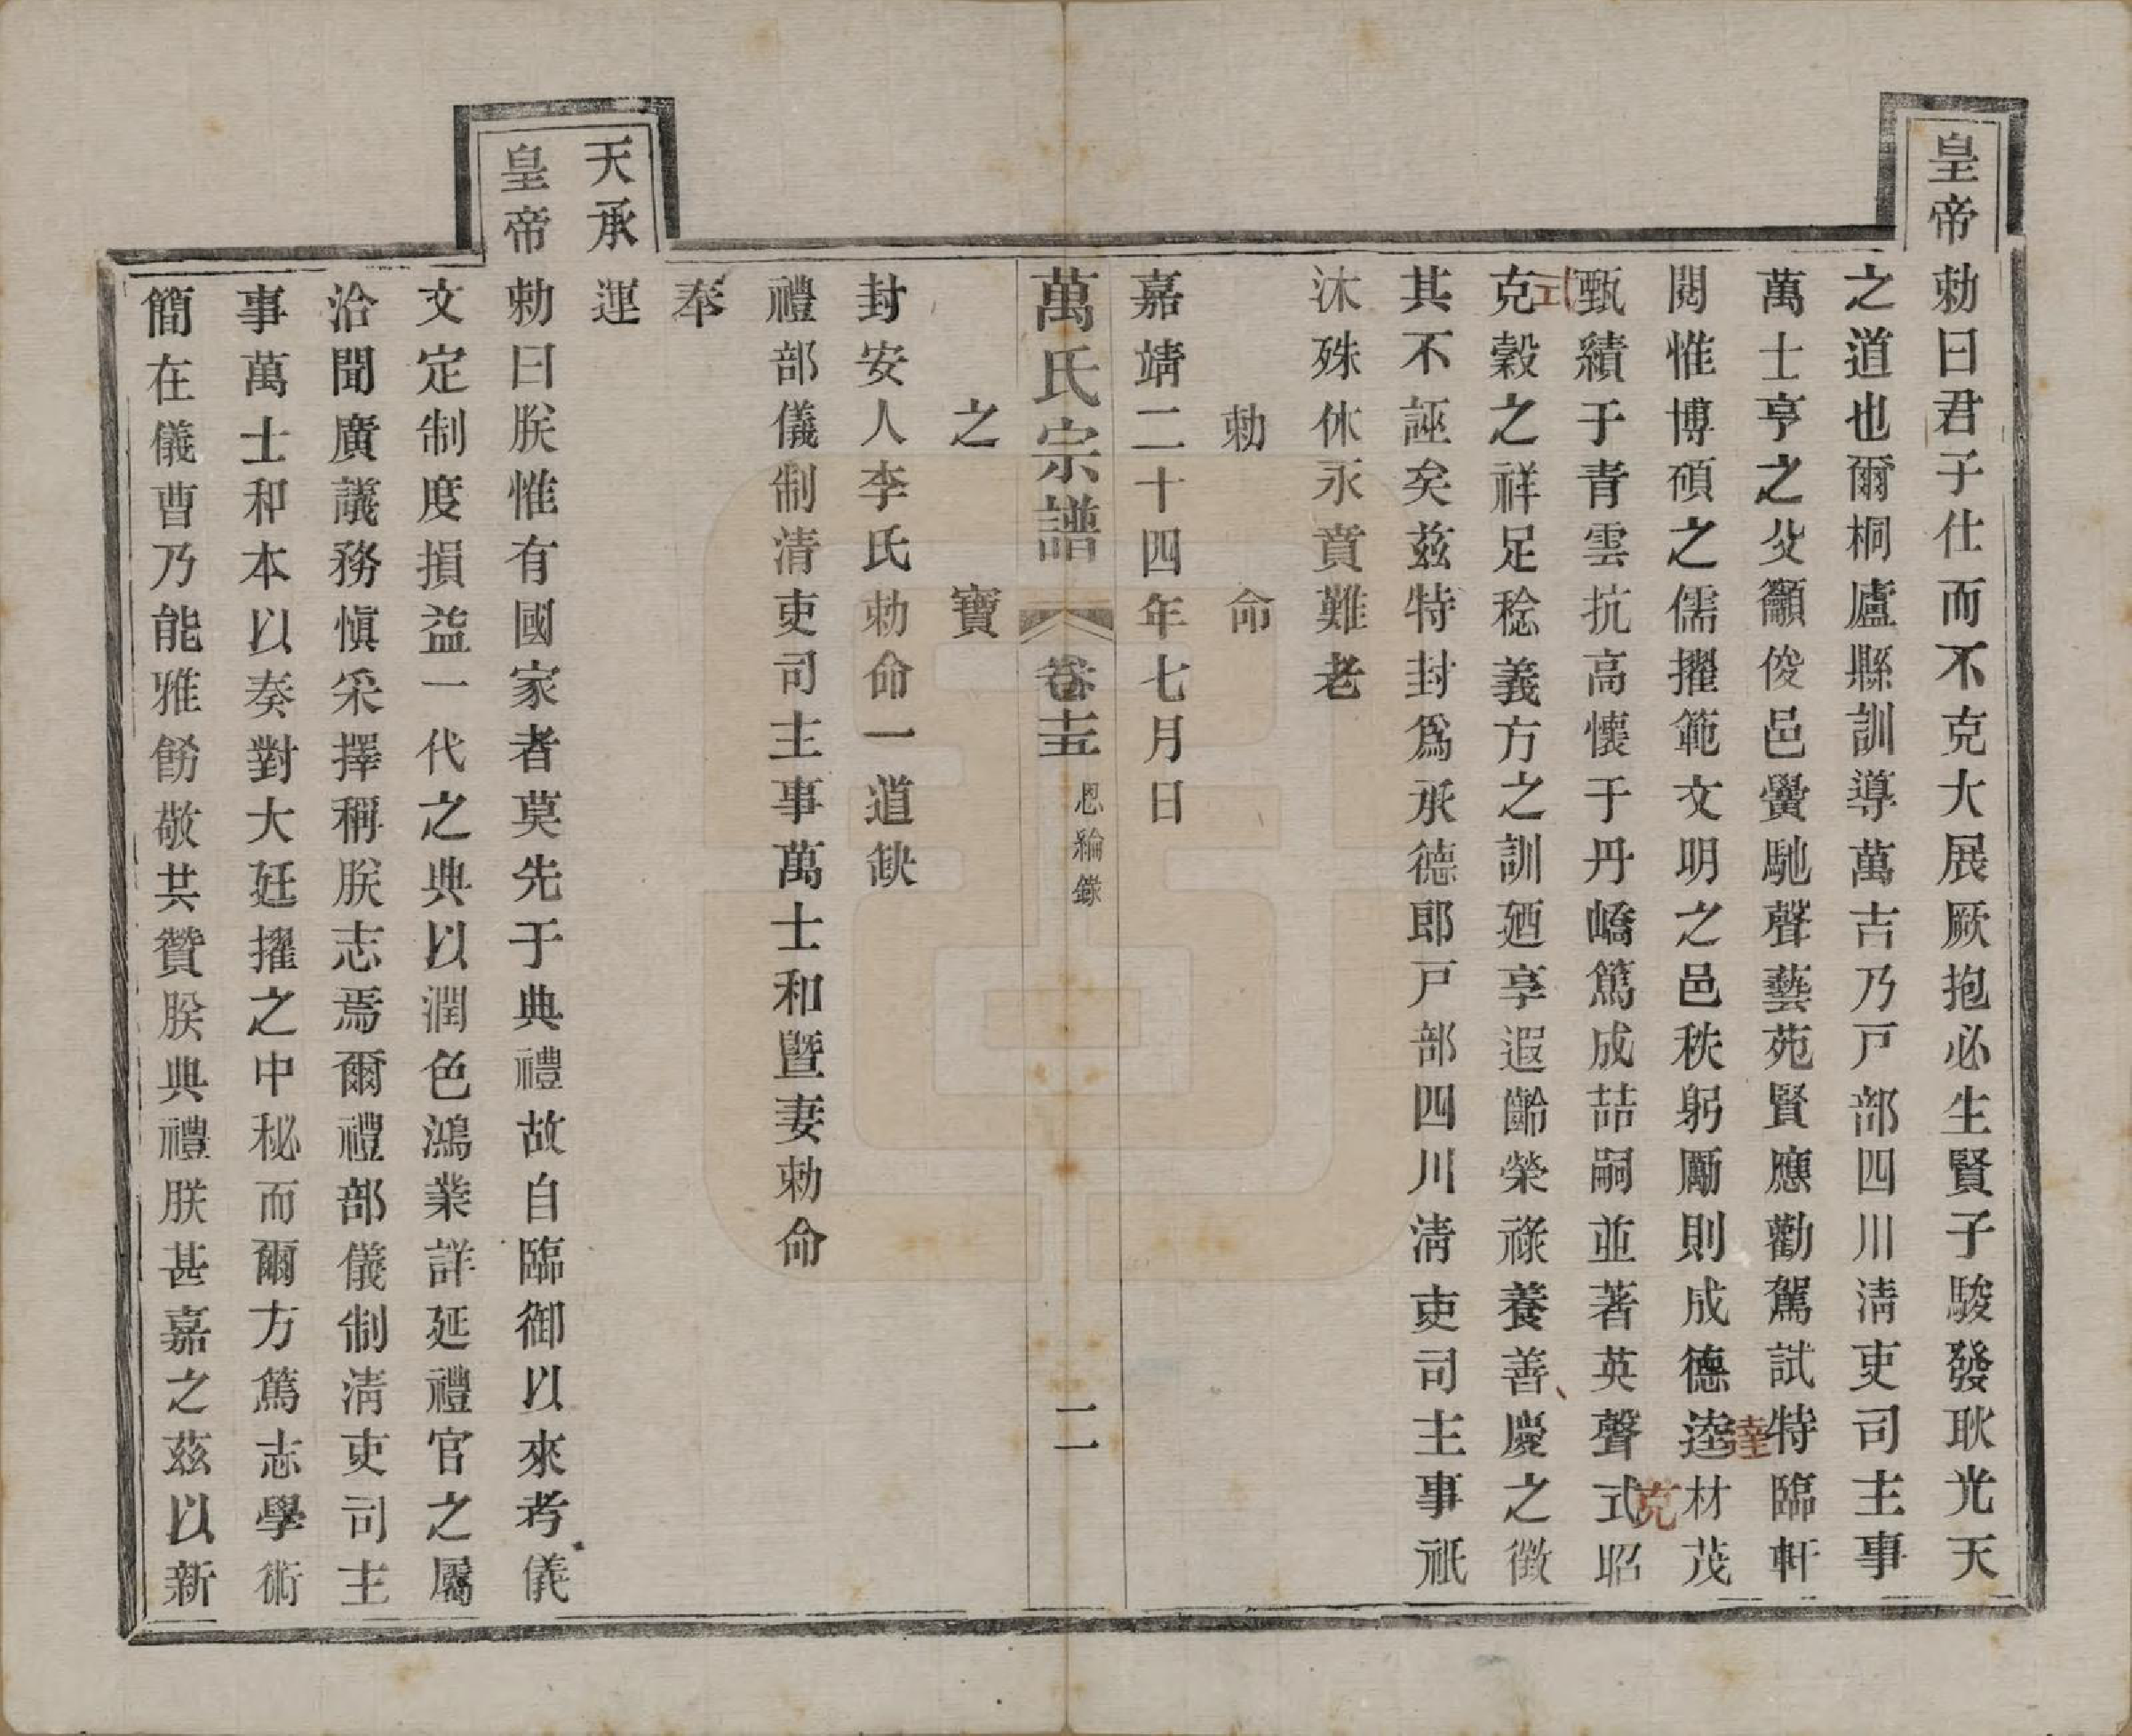 皇帝勅曰君子仕而不克大展厥抱必生賢子駿發耿光天
之道也爾桐廬縣訓導萬吉乃戸部四川清吏司主事
萬士亨之父顲俊邑黌馳聲藝苑賢應勸駕試特臨軒
達
閱惟博碩之儒擢範文明之邑秩躬勵則成德逵材茂
克
甄績于青雲抗高懷于丹嶠篤成喆嗣並著英聲式昭
式
克穀之祥足稔義方之訓廼享遐齡榮祿養善慶之徵
其不誣矣茲特封爲承德郎戸部四川清吏司主事祇
沐殊休永賁難老
勅命
嘉靖二十四年七月日
萬氏宗譜 卷十五 恩綸錄 二
之寶
封安人李氏勅命一道缺
禮部儀制清吏司主事萬士和曁妻勅命
奉
天承運
皇帝勅曰朕惟有國家者莫先于典禮故自臨御以來考儀
文定制度損益一代之典以潤色鴻業詳延禮官之屬
洽聞廣議務慎采擇稱朕志焉爾禮部儀制清吏司主
事萬士和本以奏對大廷擢之中秘而爾方篤志學術
簡在儀曹乃能雅飭敬共贊朕典禮朕甚嘉之茲以新